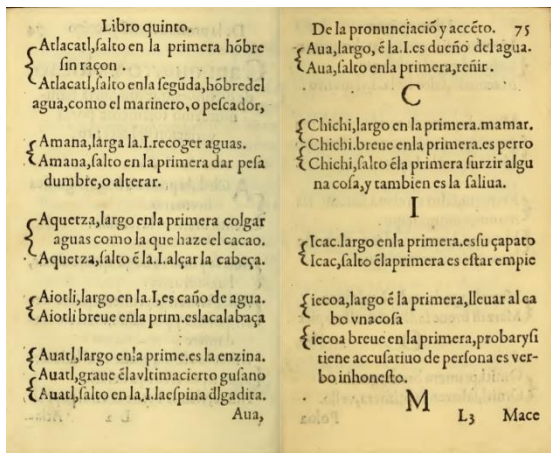 Libro quinto.
Atlacatl,ſalto en la primera hõbre
ſin raçon .
Atlacatl,ſalto enla ſegũda,hõbredel
agua,como el marinero,o peſcador,
Amana,larga la.I.recoger aguas.
Amana,ſalto en la primera dar peſa
dumbre,o alterar.
Aquetza,largo enla primera colgar
aguas como la que haze el cacao.
Aquetza,ſalto ẽ la.I.alçar la cabeça.
Aiotli,largo en la.I,es caño de agua.
Aiotli breue enla prim.eslacalabaça
Auatl,largo enla prime.es la enzina.
Auatl,graue ẽlavltimacierto guſano
Auatl,ſalto en la.I.laeſpina dlgadita.
Aua,
De la pronunciaciõ y accẽto. 75
Aua,largo, ẽ la.I.es dueño del agua.
Aua,ſalto enla primera,reñir .
C
Chichi,largo en la primera.mamar.
Chichi.breue enla primera.es perro
Chichi,ſalto ẽla primera ſurzir algu
na coſa,y tambien es la ſaliua.
I
Icac.largo enla primera.esſu çapato
Icac,ſalto ẽlaprimera es eſtar empie
iecoa,largo ẽ la primera,lleuar al ca
bo vnacoſa
iecoa breue en la primera,probaryſi
tiene accuſatiuo de perſona es ver-
bo inhoneſto.
M
L3 Mace